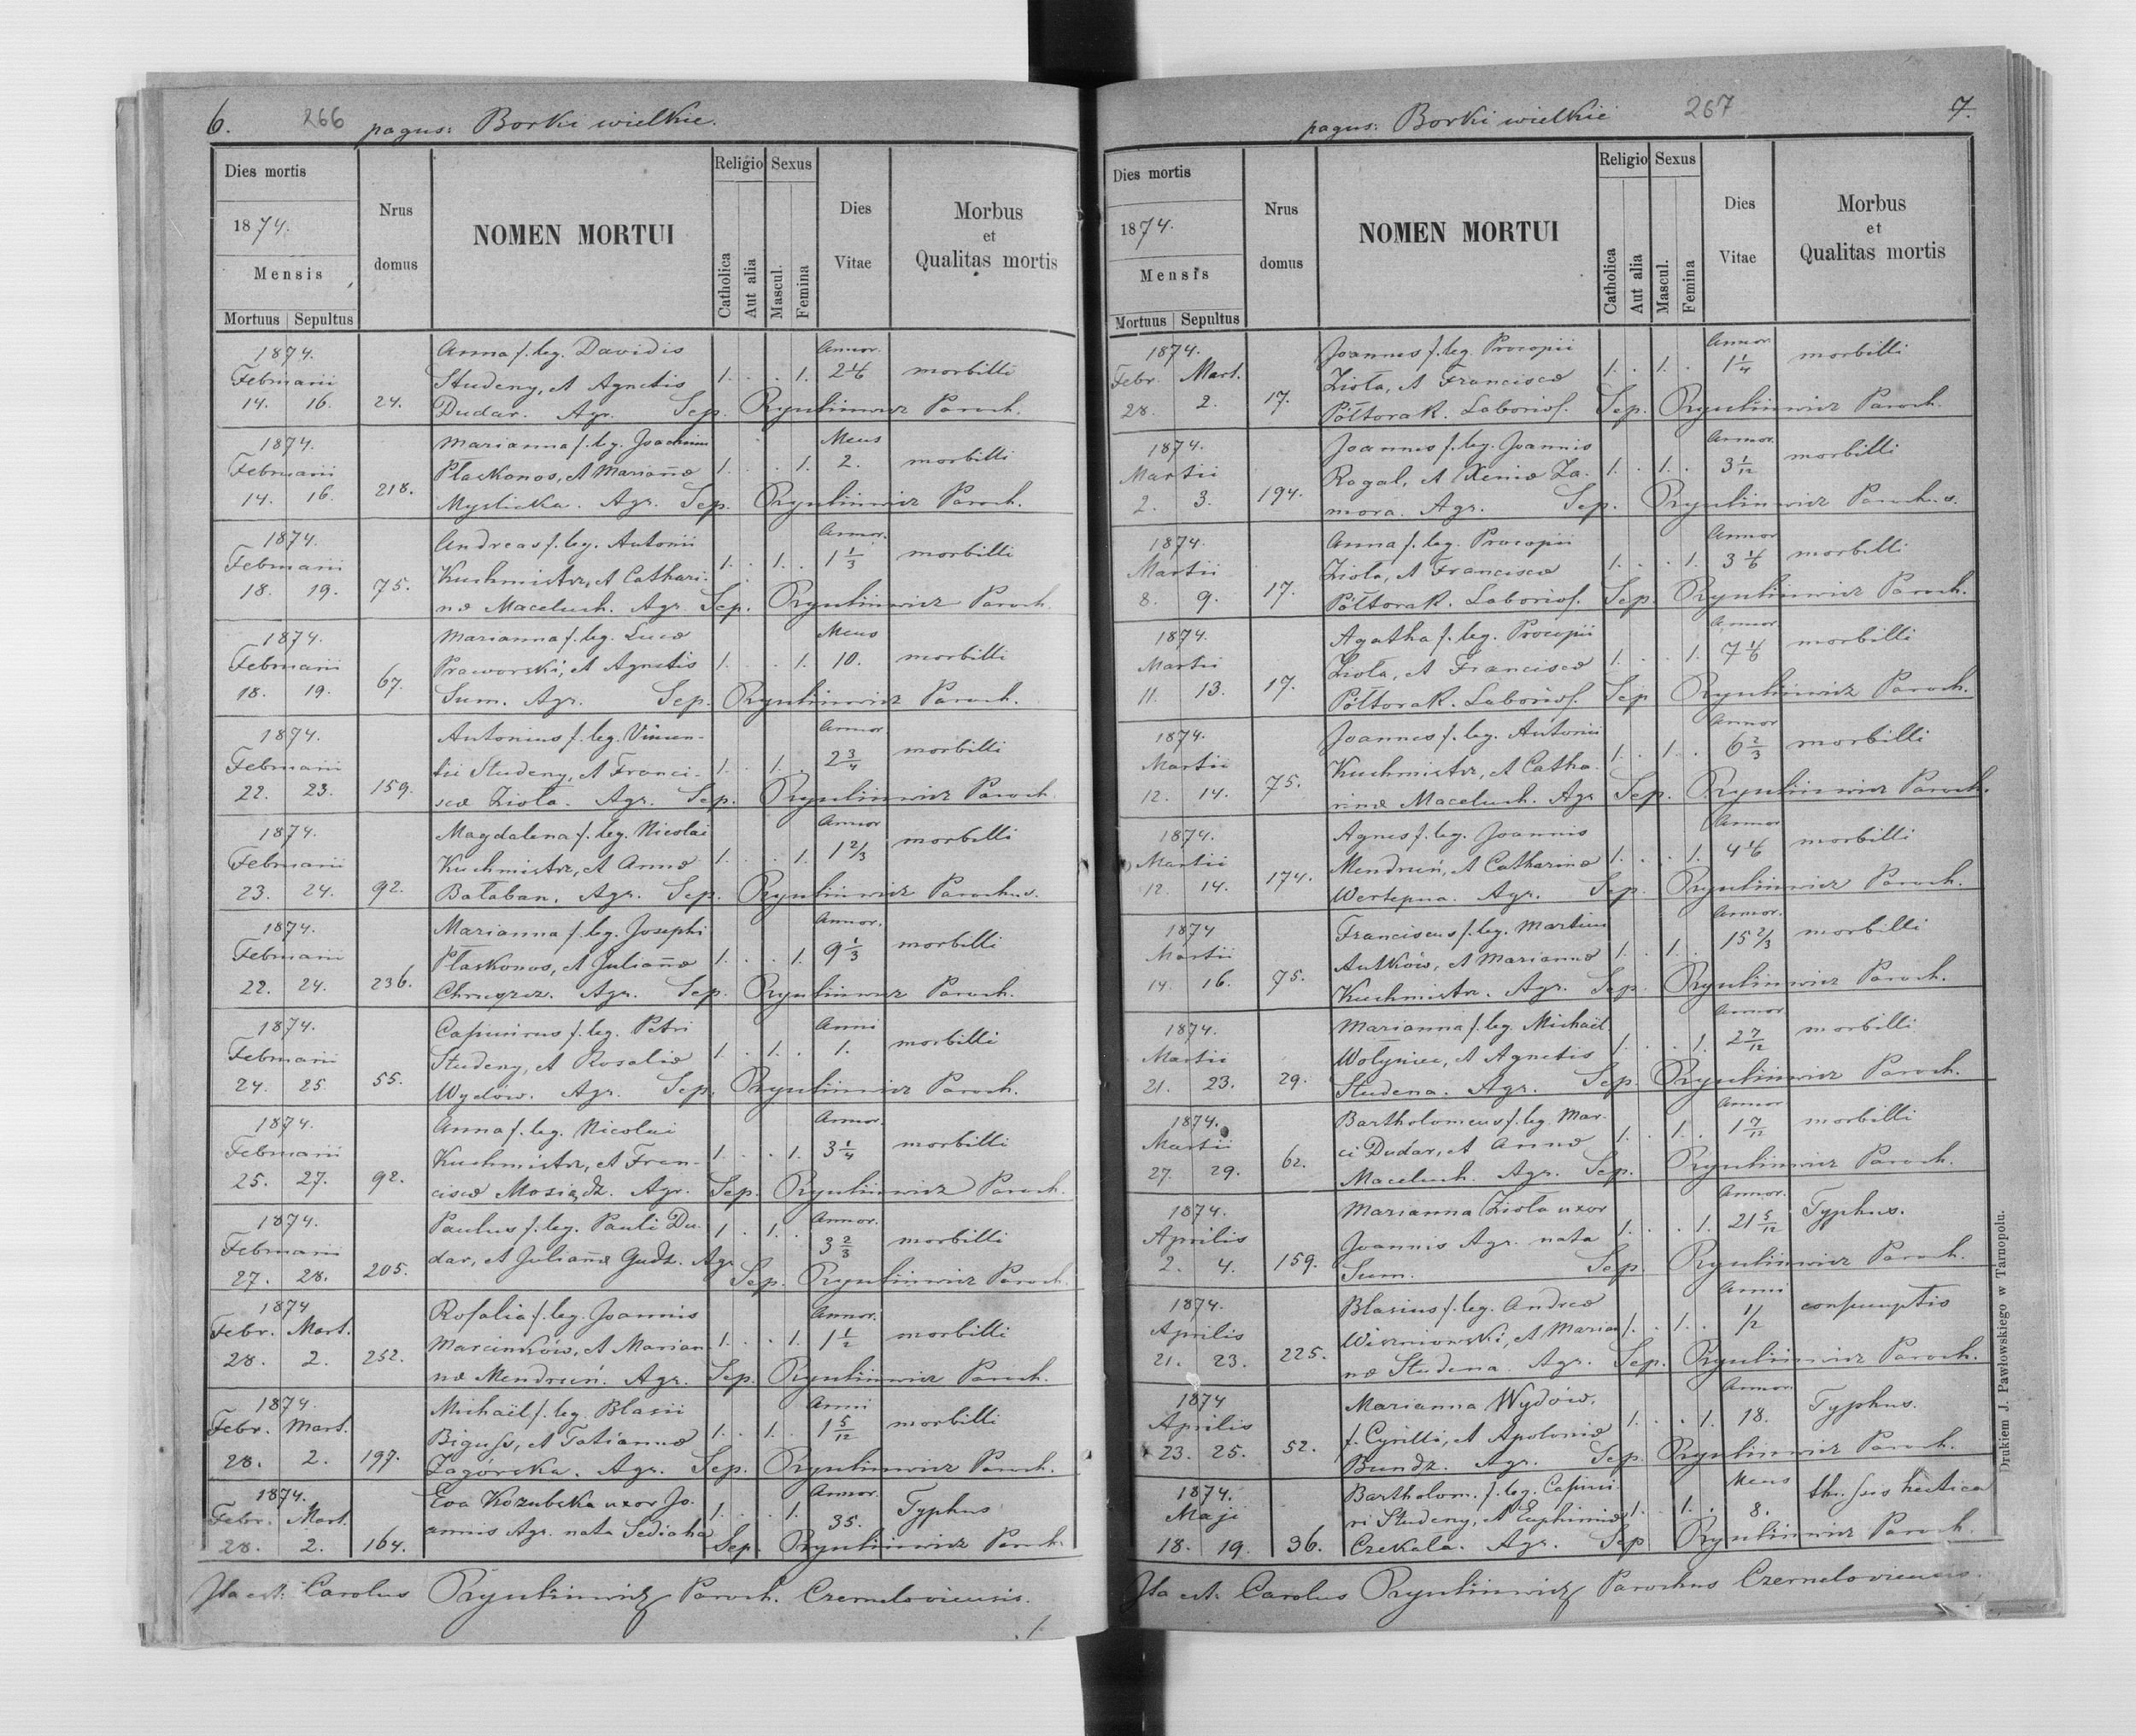 6. 266 pagus: Borki wielkie.
Dies mortis
1874.
Mensis
Mortuus Sepultus
Nrus domus
NOMEN MORTUI
Religio
Catholica
Aut alia
Sexus
Mascul.
Femina
Dies Vitae
Morbus
et
Qualitas mortis
1874. Anna f. leg. Davidis Annor.
Februarii Studeny, et Agnetis 1. . . 1. 2 1/6 morbilli
14. 16. 24. Dudar. Agr. Sep. Ryuliniewicz Paroch.
1874. Marianna f. leg. Joachimi Mens
Februarii Płaskonos, et Mariañæ 1. . . 1. 2. morbilli
14. 16. 218. Myslicka. Agr. Sep. Ryuliniewicz Paroch.
1874. Andreas f. leg. Antonii Annor.
Februarii Kuchmistrz, et Cathari- 1. . 1. . 1 1/3 morbilli
18. 19. 75. næ Maceluch. Agr. Sep. Ryuliniewicz Paroch.
1874. Marianna f. leg. Lucæ Mens
Februarii Praworski, et Agnetis 1. . . 1. 10. morbilli
18. 19. 67. Sum. Agr. Sep. Ryuliniewicz Paroch.
1874. Antonius f. leg. Vincen- Annor
Februarii tii Studeny, et Franci- 1. . 1. . 2 3/4 morbilli
22. 23. 159. scæ Zioła. Agr. Sep. Ryuliniewicz Paroch.
1874. Magdalena f. leg. Nicolai Annor
Februarii Kuchmistrz, et Annæ 1. . . 1. 1 2/3 morbilli
23. 24. 92. Bałaban. Agr. Sep. Ryuliniewicz Parochus.
1874. Marianna f. leg. Josephi Annor.
Februarii Płaskonos, et Juliañæ 1. . . 1. 9 1/3 morbilli
22. 24. 236. Chruszcz. Agr. Sep. Ryuliniewicz Paroch.
1874. Casimirus f. leg. Petri Anni
Februarii Studeny, et Rosaliæ 1. . 1. . 1. morbilli
24. 25 55. Wydów. Agr. Sep. Ryuliniewicz Paroch.
1874. Anna f. leg. Nicolai Annor.
Februarii Kuchmistrz, et Fran- 1. . . 1. 3 1/4 morbilli
25. 27. 92. ciscæ Mosiądz. Agr. Sep. Ryuliniewicz Paroch.
1874. Paulus f. leg. Pauli Du- 1. . 1. . Annor.
Februarii dar, et Juliañæ Gudz. Agr 3 2/3 morbilli
27. 28. 205. Sep. Ryuliniewicz Paroch.
1874 Rosalia f. leg. Joannis Annor.
Febr. Mart. Marcinków, et Marian 1. . . 1. 1 1/2 morbilli
28. 2. 252. næ Mendruń. Agr. Sep. Ryuliniewicz Paroch.
1874. Michaël f. leg. Blasii Anni
Febr. Mart. Biguss, et Tatiannæ 1. . 1. . 1 5/12 morbilli
28. 2. 197. Zagórska. Agr. Sep. Ryuliniewicz Paroch.
1874. Eva Kozubska uxor Jo- Annor.
Febr. Mart. annis Agr. nata Sediaha 1. . . 1. 35. Typhus
28. 2. 164. Sep. Ryuliniewicz Paroch.
Ita est: Carolus Ryuliniewicz Paroch. Czerneloviensis.
1
pagus: Borki wielkie 267 7.
Dies mortis
1874.
Mensis
Mortuus Sepultus
Nrus domus
NOMEN MORTUI
Religio
Catholica
Aut alia
Sexus
Mascul.
Femina
Dies Vitae
Morbus
et
Qualitas mortis
1874. Joannes f. leg. Procopii Annor
Febr. Mart. Zioła, et Franciscæ 1. . 1. . 1 1/4 morbilli
28. 2. 17. Półtorak. Laborios. Sep. Ryuliniewicz Paroch.
1874. Joannes f. leg. Joannis Annor.
Martii Rogal, et Xeniæ Za- 1. . 1. . 3 1/12 morbilli
2. 3. 194. mora. Agr. Sep. Ryuliniewicz Parochus.
1874. Anna f. leg. Procopii Annor
Martii Zioła, et Franciscæ 1. . . 1. 3 1/6 morbilli
8. 9. 17. Półtorak. Laborios. Sep. Ryuliniewicz Paroch.
1874. Agatha f. leg. Procopii Annor
Martii Zioła, et Franciscæ 1. . . 1. 7 1/6 morbilli
11. 13. 17. Półtorak. Laborios. Sep Ryuliniewicz Paroch.
1874. Joannes f. leg. Antonii Annor
Martii Kuchmistrz, et Catha- 1. . 1. . 6 2/3 morbilli
12. 14. 75. rinæ Maceluch. Agr Sep. Ryuliniewicz Paroch.
1874. Agnes f. leg. Joannis Annor
Martii Mendruń, et Catharinæ 1. . . 1. 4 1/6 morbilli
12. 14. 174. Wertepna. Agr. Sep. Ryuliniewicz Paroch.
1874 Franciscus f. leg. Martini Annor.
Martii Antków, et Mariannæ 1. . 1. . 15 2/3 morbilli
14. 16. 75. Kuchmistrz. Agr. Sep. Ryuliniewicz Paroch.
1874. Marianna f. leg. Michaël. Annor
Martii Wołyniec, et Agnetis 1. . . 1. 2 7/12 morbilli
21. 23. 29. Studena. Agr. Sep. Ryuliniewicz Paroch.
1874. Bartholomeus f. leg. Mar- Annor
Martii ci Dudar, et Annæ 1. . 1. . 1 7/12 morbilli
27. 29. 62. Maceluch. Agr. Sep. Ryuliniewicz Paroch.
1874. Marianna Zioła uxor Annor.
Aprilis Joannis Agr. nata 1. . . 1. 21 5/12 Typhus.
2. 4. 159. Sum. Sep. Ryuliniewicz Paroch.
1874. Blasius f. leg. Andreæ Anni
Aprilis Wiszniowski, et Marian 1. . 1. . 1/2 consumptio
21. 23. 225. næ Studena. Agr. Sep. Ryuliniewicz Paroch.
1874 Marianna Wydów, Annor.
Aprilis f. Cyrilli, et Apoloniæ 1. . . 1. 18. Typhus.
23. 25. 52. Bundz. Agr. Sep. Ryuliniewicz Paroch.
1874. Bartholom. f. leg. Casimi- Mens
Maji ri Studeny, et Euphimiæ 1. . 1. . 8. hectica
18. 19. 36. Czekala. Agr. Sep Ryuliniewicz Paroch.
Ita est: Carolus Ryuliniewicz Parochus Czerneloviensis.
Drukiem J. Pawłowskiego w Tarnopolu.